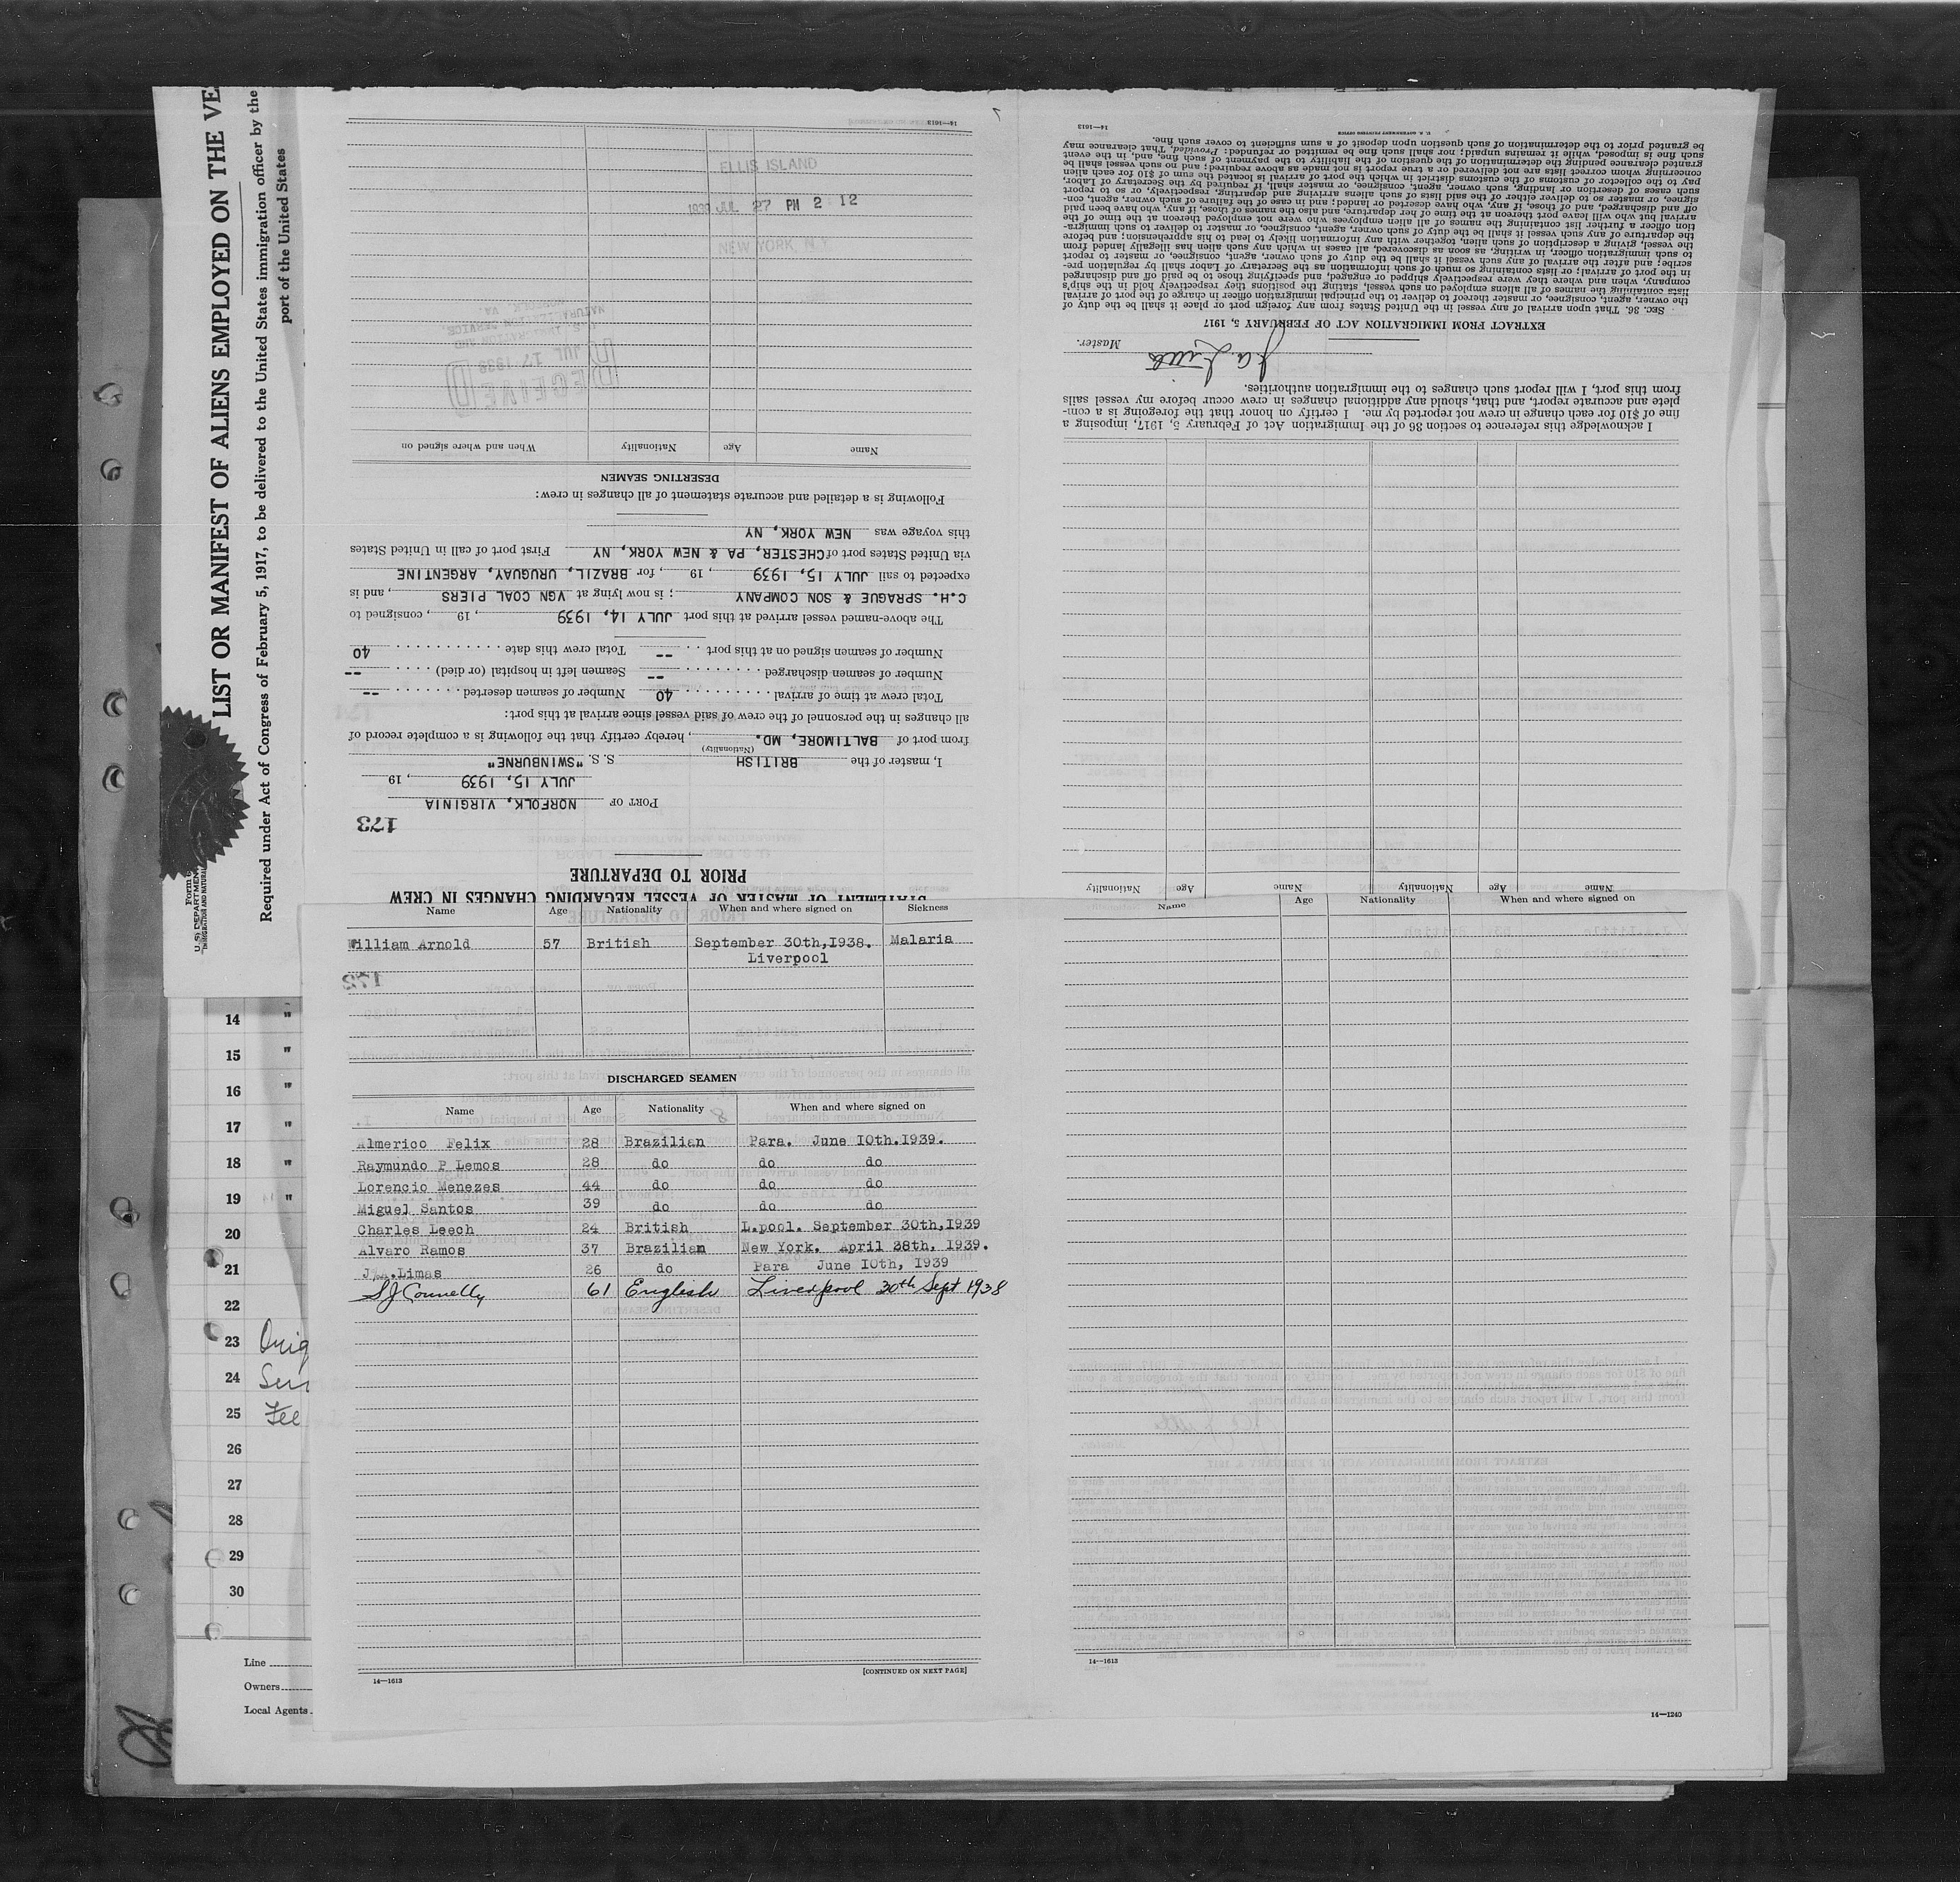 LIST OR MANIFEST OF ALIENS EMPLOYED ON THE VE
Required under Act of Congress of February 5, 1917, to be delivered to the United States immigration officer by the
port of the United States
STATEMENT OF MASTER OF VESSEL REGARDING CHANGES IN CREW
PRIOR TO DEPARTURE
173
PORT OF NORFOLK, VIRGINIA
JULY 15, 1939, 19
I, master of the BRITISH S. S. "SWINBURNE"
(Nationality)
from port of BALTIMORE, MD., hereby certify that the following is a complete record of
all changes in the personnel of the crew of said vessel since arrival at this port:
Total crew at time of arrival 40 Number of seamen deserted --
Number of seamen discharged -- Seamen left in hospital (or died) --
Number of seamen signed on at this port -- Total crew this date 40
The above-named vessel arrived at this port JULY 14, 1939, 19 , consigned to
C.H. SPRAGUE & SON COMPANY; is now lying at VGN COAL PIERS, and is
expected to sail JULY 15, 1939, 19 , for BRAZIL, URUGUAY, ARGENTINE
via United States port of CHESTER, PA & NEW YORK, NY First port of call in United States
this voyage was NEW YORK, NY
Following is a detailed and accurate statement of all changes in crew:
DESERTING SEAMEN
Name Age Nationality When and where signed on
RECEIVED
JUL 17 1939
ELLIS ISLAND
1939 JUL 27 PM 2 12
NEW YORK, N.Y.
14—1613
Name Age Nationality Name Age Nationality
I acknowledge this reference to section 36 of the Immigration Act of February 5, 1917, imposing a
fine of $10 for each change in crew not reported by me. I certify on honor that the foregoing is a com-
plete and accurate report, and that, should any additional changes in crew occur before my vessel sails
from this port, I will report such changes to the immigration authorities.
Master.
EXTRACT FROM IMMIGRATION ACT OF FEBRUARY 5, 1917
SEC. 36. That upon arrival of any vessel in the United States from any foreign port or place it shall be the duty of
the owner, agent, consignee, or master thereof to deliver to the principal immigration officer in charge of the port of arrival
lists containing the names of all aliens employed on such vessel, stating the positions they respectively hold in the ship's
company, when and where they were respectively shipped or engaged, and specifying those to be paid off and discharged
in the port of arrival; or lists containing so much of such information as the Secretary of Labor shall by regulation pre-
scribe; and after the arrival of any such vessel it shall be the duty of such owner, agent, consignee, or master to report
to such immigration officer, in writing, as soon as discovered, all cases in which any such alien has illegally landed from
the vessel, giving a description of such alien, together with any information likely to lead to his apprehension; and before
the departure of any such vessel it shall be the duty of such owner, agent, consignee, or master to deliver to such immigra-
tion officer a further list containing the names of all alien employees who were not employed thereon at the time of the
arrival but who will leave port thereon at the time of her departure, and also the names of those, if any, who have been paid
off and discharged, and of those, if any, who have deserted or landed; and in case of the failure of such owner, agent, con-
signee, or master so to deliver either of the said lists of such aliens arriving and departing, respectively, or so to report
such cases of desertion or landing, such owner, agent, consignee, or master shall, if required by the Secretary of Labor,
pay to the collector of customs of the customs district in which the port of arrival is located the sum of $10 for each alien
concerning whom correct lists are not delivered or a true report is not made as above required; and no such vessel shall be
granted clearance pending the determination of the question of the liability to the payment of such fine, and, in the event
such fine is imposed, while it remains unpaid; nor shall such fine be remitted or refunded: Provided, That clearance may
be granted prior to the determination of such question upon deposit of a sum sufficient to cover such fine.
U. S. GOVERNMENT PRINTING OFFICE
14—1613
Name Age Nationality When and where signed on Sickness
William Arnold 57 British September 30th,I938. Malaria
Liverpool
DISCHARGED SEAMEN
Name Age Nationality When and where signed on
Almerico Felix 28 Brazilian Para. June I0th.I939.
Raymundo P Lemos 28 do do do
Lorencio Menezes 44 do do do
Miguel Santos 39 do do do
Charles Leech 24 British L.pool. September 30th,I939
Alvaro Ramos 37 Brazilian New York. April 28th, I939.
Limas 26 do Para June I0th, I939
S J Connelly 61 English Liverpool 30th Sept 1938
14—1613
[CONTINUED ON NEXT PAGE]
Name Age Nationality When and where signed on
14—1613
14—1240
14 "
15 "
16 "
17 "
18 "
19 "
20
21
22
23 Orig
24
25
26
27
28
29
30
Line
Owners
Local Agents